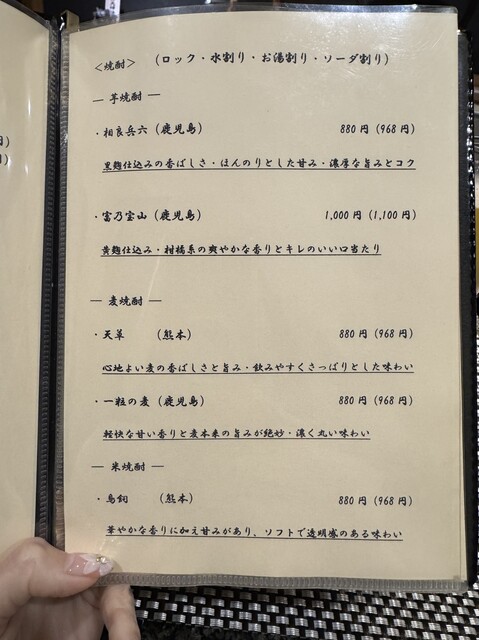 <焼酎> (ロック・水割り・お湯割り・ソーダ割り)
― 芋焼酎 ―
・相良兵六(鹿児島) 880円(968円)
黒麹仕込みの香ばしさ・ほんのりとした甘み・濃厚な旨みとコク
・富乃宝山(鹿児島) 1,000円(1,100円)
黄麹仕込み・柑橘系の爽やかな香りとキレのいい口当たり
― 麦焼酎 ―
・天草 (熊本) 880円(968円)
心地よい麦の香ばしさと旨み・飲みやすくさっぱりとした味わい
・一粒の麦(鹿児島) 880円(968円)
軽快な甘い香りと麦本来の旨みが絶妙・濃く丸い味わい
― 米焼酎 ―
・鳥飼 (熊本) 880円(968円)
華やかな香りに加え甘みがあり、ソフトで透明感のある味わい